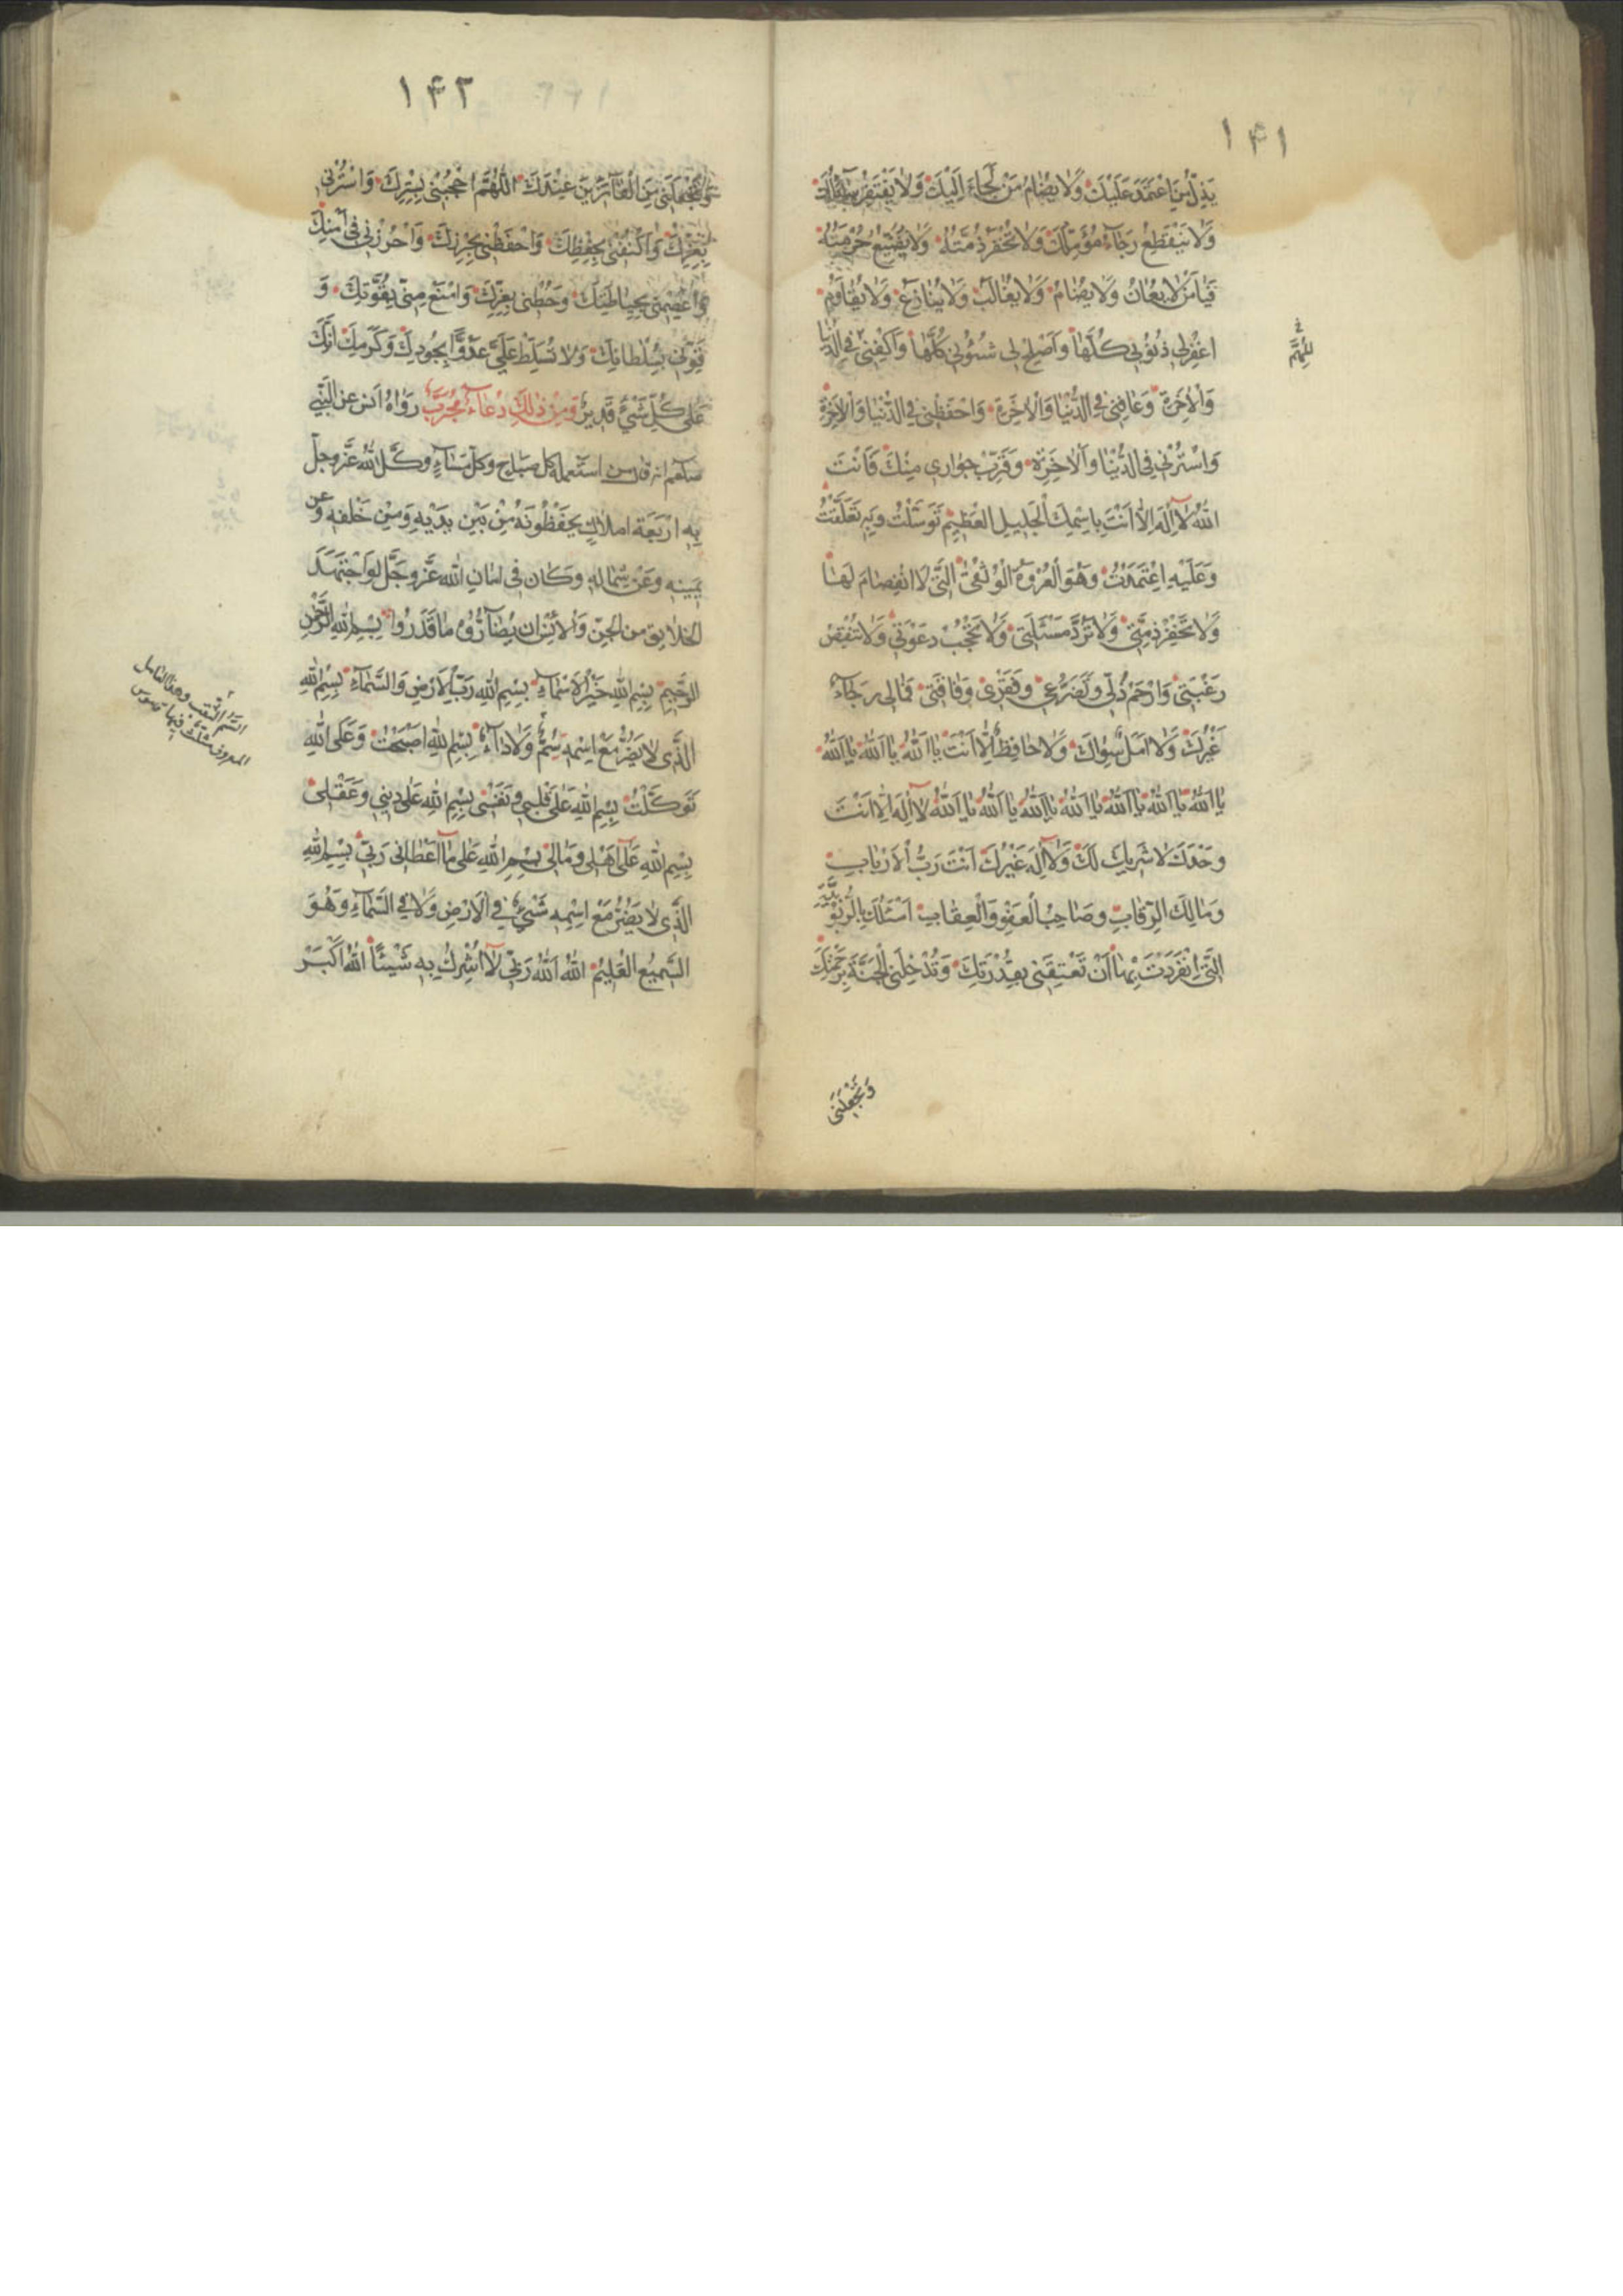 ١۴١
يَذِلُّ مَنِ اعْتَمَدَ عَلَيْكَ وَلا يُضامُ مَنْ لَجَاءَ اِلَيْكَ وَلا يَفْتَقِرُ سآئِلُكَ
وَلا يَنْقَطِعُ رَجاءُ مُؤَمِّلِكَ وَلا تُخْفَرُ ذِمَّتُهُ وَلا يُضَيَّعُ حُرْمَتُهُ
فَيا مَنْ لا يُعانُ وَلا يُضامُ وَلا يُغالَبُ وَلا يُنازَعُ وَلا يُقاوَمُ
اغْفِرْ لي ذُنُوبي كُلَّها وَاَصْلِحْ لي شُئُوني كُلَّها وَاكْفِني فِي الدُّنْيا
وَالْآخِرَةِ وَعافِني فِي الدُّنْيا وَالْآخِرَةِ وَاحْفَظْني فِي الدُّنْيا وَالْآخِرَةِ
وَاسْتُرْني فِي الدُّنْيا وَالْآخِرَةِ وَقَرِّبْ جِواري مِنْكَ فَاَنْتَ
اللهُ لا اِلهَ اِلّا اَنْتَ بِاسْمِكَ الْجَليلِ الْعَظيمِ تَوَسَّلْتُ وَبِهِ تَعَلَّقْتُ
وَعَلَيْهِ اعْتَمَدْتُ وَهُوَ الْعُرْوَةُ الْوُثْقى الَّتي لَا انْفِصامَ لَها
وَلا تَخْفِرْ ذِمَّتي وَلا تَرُدَّ مَسْئَلَتي وَلا تَحْجُبْ دَعْوَتي وَلا تَنْقُصْ
رَغْبَتي وَارْحَمْ ذُلّي وَتَضَرُّعي وَفَقْري وَفاقَتي فَمالي رَجاءٌ
غَيْرُكَ وَلا اَمَلٌ سِواكَ وَلا حافِظٌ اِلّا اَنْتَ يا اَللهُ يا اَللهُ يا اَللهُ
يا اَللهُ يا اَللهُ يا اَللهُ يا اَللهُ يا اَللهُ يا اَللهُ يا اَللهُ لا اِلهَ اِلّا اَنْتَ
وَحْدَكَ لا شَريكَ لَكَ وَلا اِلهَ غَيْرُكَ اَنْتَ رَبُّ الْاَرْبابِ
وَمالِكَ الرِّقابِ وَصاحِبُ الْعَفْوِ وَالْعِقابِ اَسْئَلُكَ بِالرُّبُوبِيَّةِ
الَّتي انْفَرَدْتَ بِها اَنْ تُعْتِقَني بِقُدْرَتِكَ وَتُدْخِلَني الْجَنَّةَ بِرَحْمَتِكَ
وَتَجْعَلَني
١۴٢
وَتَجْعَلَني مِنَ الْفآئِزينَ عِنْدَكَ اَللّهُمَّ احْجُبْني بِسِتْرِكَ وَاسْتُرْني
بِعِزِّكَ وَاكْنُفْني بِحِفْظِكَ وَاحْفَظْني بِحِرْزِكَ وَاحْرُزْني في اَمْنِكَ
وَاعْصِمْني بِحِياطَتِكَ وَحُطْني بِعِزِّكَ وَامْنَعْ مِنّي بِقُوَّتِكَ وَ
قَوِّني بِسُلْطانِكَ وَلا تُسَلِّطْ عَلَيَّ عَدُوًّا بِجُودِكَ وَكَرَمِكَ اِنَّكَ
عَلى كُلِّ شَيْءٍ قَديرٌ وَمِنْ ذلِكَ دُعاءٌ مُجَرَّبٌ رَواهُ اَنس عن النَّبي
صلعم انه قال من استعمله كل صباح وكلّ مساءٍ وكّل الله عزّ وجلّ
بِه اَرْبَعَة املاكٍ يحفَظُونَهُ مِنْ بَيْنِ يَدَيْهِ وَمِنْ خَلْفِه وَعن
يمينِه وعَنْ شمالِهِ وَكان في امانِ الله عَزَّ وجَلَّ لَو اجْتَهَدَ
الخلايق من الجِنّ وَالْاِنس ان يُضآرُّوه ما قَدَرُوا بِسْمِ اللهِ الرَّحْمنِ
الرَّحيمِ بِسْمِ اللهِ خَيْرِ الْاَسْماءِ بِسْمِ اللهِ رَبِّ الْاَرْضِ وَالسَّماءِ بِسْمِ اللهِ
الَّذي لا يَضُرُّ مَعَ اسْمِه سَمٌّ وَلا داءٌ بِسْمِ اللهِ اَصْبَحْتُ وَعَلَى اللهِ
تَوَكَّلْتُ بِسْمِ اللهِ عَلى قَلْبي وَنَفْسي بِسْمِ اللهِ عَلى ديني وَعَقْلي
بِسْمِ اللهِ عَلى اَهْلي وَمالي بِسْمِ اللهِ عَلى ما اَعْطاني رَبّي بِسْمِ اللهِ
الَّذي لا يَضُرُّ مَعَ اسْمِه شَيْءٌ فِي الْاَرْضِ وَلا فِي السَّماءِ وَهُوَ
السَّميعُ الْعَليمُ اَللهُ اَللهُ رَبّي لا اُشْرِكُ بِه شَيْئًا اَللهُ اَكْبَرُ
السَّمُّ الثقب وهذا القاتل
المعروف مثلّث فيهما قاموس